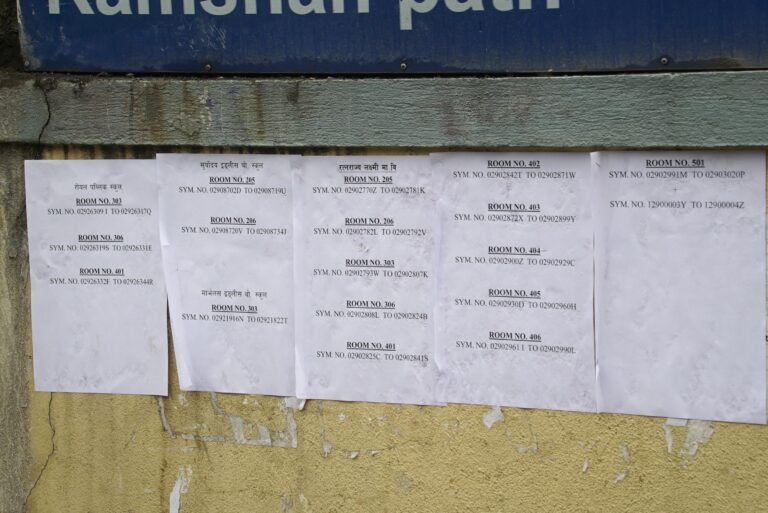 Ramshah path
रोयल पब्लिक स्कुल
ROOM NO. 303
SYM. NO. 02926309I TO 02926317Q
ROOM NO. 306
SYM. NO. 02926319S TO 02926331E
ROOM NO. 401
SYM. NO. 02926332F TO 02926344R
सूर्योदय इङ्लीस बो. स्कूल
ROOM NO. 205
SYM. NO. 02908702D TO 02908719U
ROOM NO. 206
SYM. NO. 02908720V TO 02908734J
मार्भलस इङ्लीस बो. स्कूल
ROOM NO. 303
SYM. NO. 02921916N TO 02921822T
रत्नराज्य लक्ष्मी मा वि
ROOM NO. 205
SYM. NO. 02902770Z TO 02902781K
ROOM NO. 206
SYM. NO. 02902782L TO 02902792V
ROOM NO. 303
SYM. NO. 02902793W TO 02902807K
ROOM NO. 306
SYM. NO. 02902808L TO 02902824B
ROOM NO. 401
SYM. NO. 02902825C TO 02902841S
ROOM NO. 402
SYM. NO. 02902842T TO 02902871W
ROOM NO. 403
SYM. NO. 02902872X TO 02902899Y
ROOM NO. 404
SYM. NO. 02902900Z TO 02902929C
ROOM NO. 405
SYM. NO. 02902930D TO 02902960H
ROOM NO. 406
SYM. NO. 02902961I TO 02902990L
ROOM NO. 501
SYM. NO. 02902991M TO 02903020P
+
SYM. NO. 12900003Y TO 12900004Z